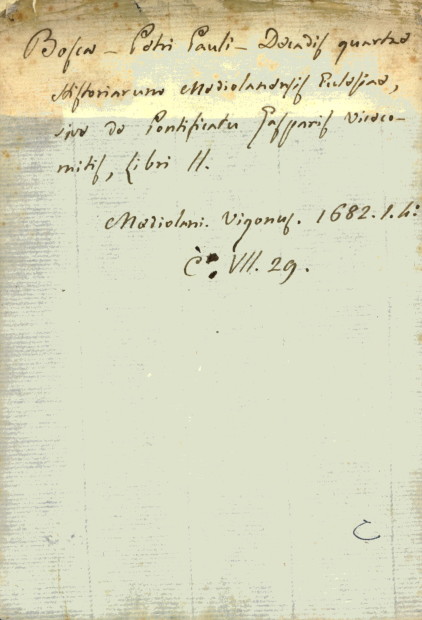 Bosca - Petri Pauli - Decadis quartae
Historiarum Mediolanensis Eclesiae,
sive de Pontificatu Gasparis Viceco-
mitis, Libri II.
Mediolani. Vigonus. 1682. 1. 4:
VII. 29.
C